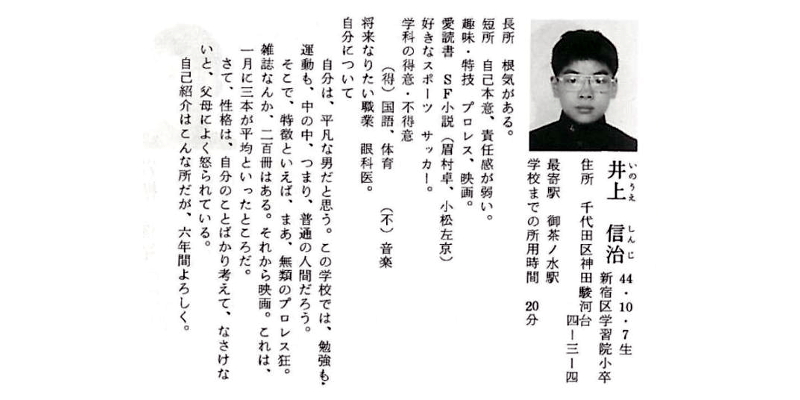 井上 信治 44・10・7生
いのうえ しんじ
新宿区学習院小卒
住所 千代田区神田駿河台
四ー三ー四
最寄駅 御茶ノ水駅
学校までの所用時間 20分
長所 根気がある。
短所 自己本意、責任感が弱い。
趣味・特技 プロレス、映画。
愛読書 SF小説(眉村卓、小松左京)
好きなスポーツ サッカー。
学科の得意・不得意
(得)国語、体育 (不)音楽
将来なりたい職業 眼科医。
自分について
自分は、平凡な男だと思う。この学校では、勉強も、
運動も、中の中、つまり、普通の人間だろう。
そこで、特徴といえば、まあ、無類のプロレス狂。
雑誌なんか、二百冊はある。それから映画。これは、
一月に三本が平均といったところだ。
さて、性格は、自分のことばかり考えて、なさけな
いと、父母によく怒られている。
自己紹介はこんな所だが、六年間よろしく。